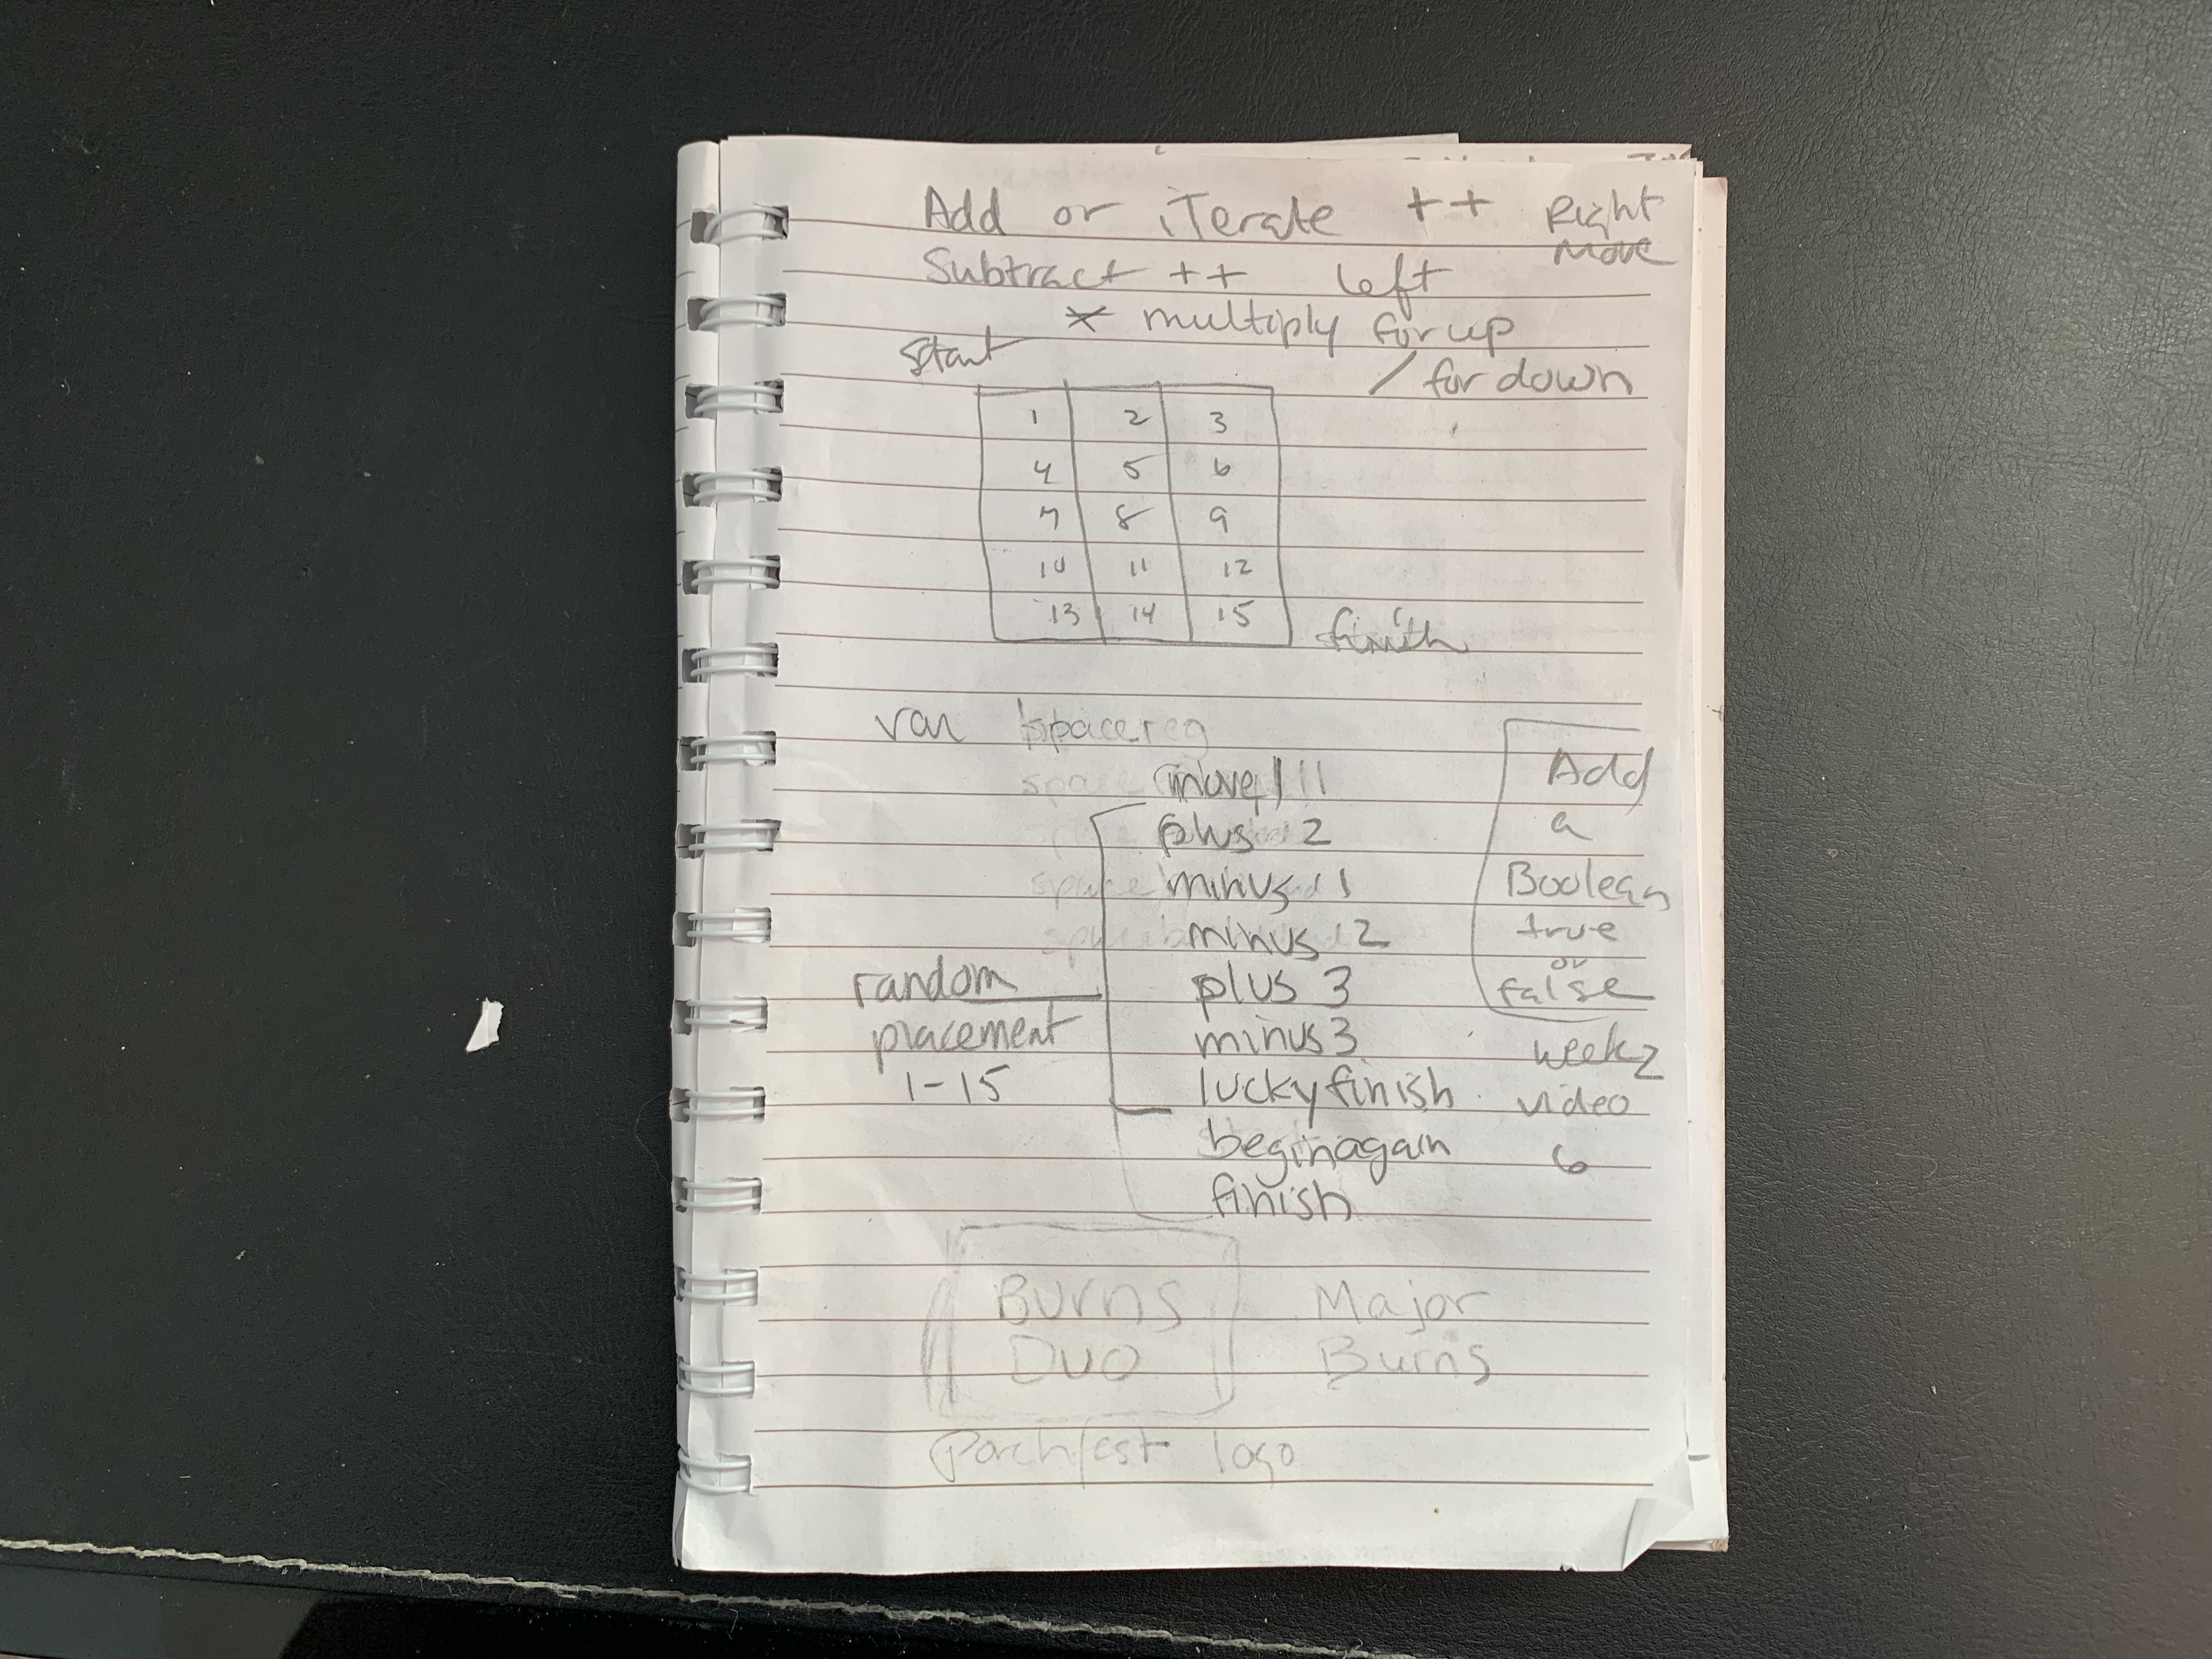 Add or iTerate ++ Right
move
Subtract ++ left
* multiply for up
start / for down
1 2 3
4 5 6
7 8 9
10 11 12
13 14 15
finish
var space
move 1
plus 2
minus 1
minus 2
plus 3
minus 3
lucky finish
begin again
finish
random
placement
1-15
Add
a
Boolean
true
or
false
week 2
video
6
Burns Major
Duo Burns
Porchfest logo